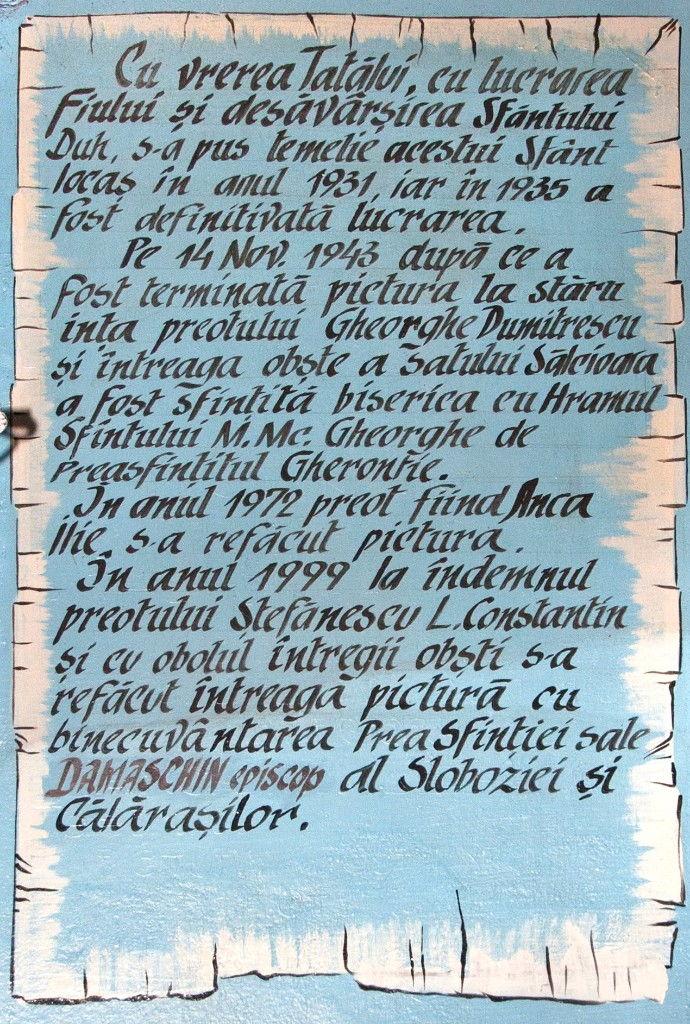 Cu vrerea Tatălui, cu lucrarea
Fiului și desăvârșirea Sfântului
Duh, s-a pus temelie acestui Sfânt
locaș în anul 1931, iar în 1935 a
fost definitivată lucrarea.
Pe 14 Nov. 1943 după ce a
fost terminată pictura la stăru
inta preotului Gheorghe Dumitrescu
și întreaga obște a Satului Sălcioara
a fost Sfintită biserica cu Hramul
Sfintului M. Mc. Gheorghe de
Preasfințitul Gherontie.
In anul 1972 preot fiind Anca
Ilie s-a refăcut pictura.
În anul 1999 la îndemnul
preotului Stefanescu L. Constantin
și cu obolul întregii obști s-a
refăcut întreagă pictură cu
binecuvântarea Prea Sfintiei sale
DAMASCHIN episcop al Sloboziei și
Călărașilor.